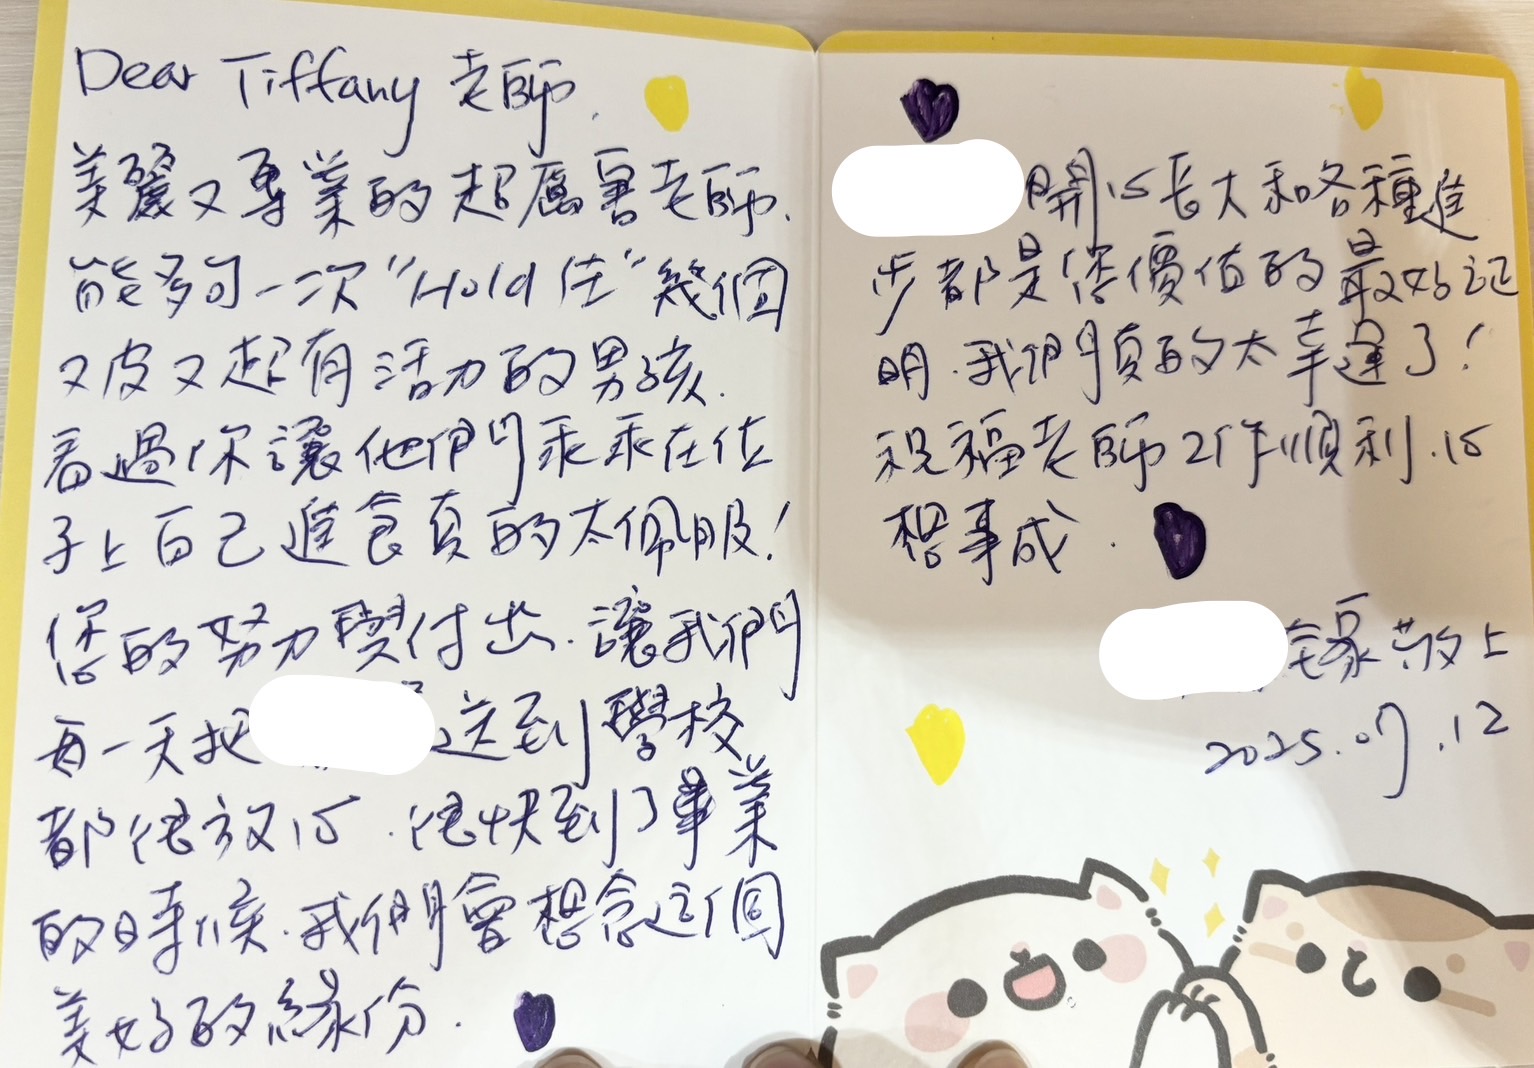 Dear Tiffany 老師.
美麗又專業的超厲害老師.
能夠一次"Hold住"幾個
又皮又超有活力的男孩.
看過你讓他們乖乖在位
子上自己進食真的太佩服!
您的努力與付出.讓我們
每一天把
送到學校
都很放心.很快到了畢業
的時候.我們會想念這個
美好的緣份.
開心長大和各種進
步都是您價值的最好証
明.我們真的太幸運了!
祝福老師工作順利.心
想事成.
全家敬上
2025.07.12